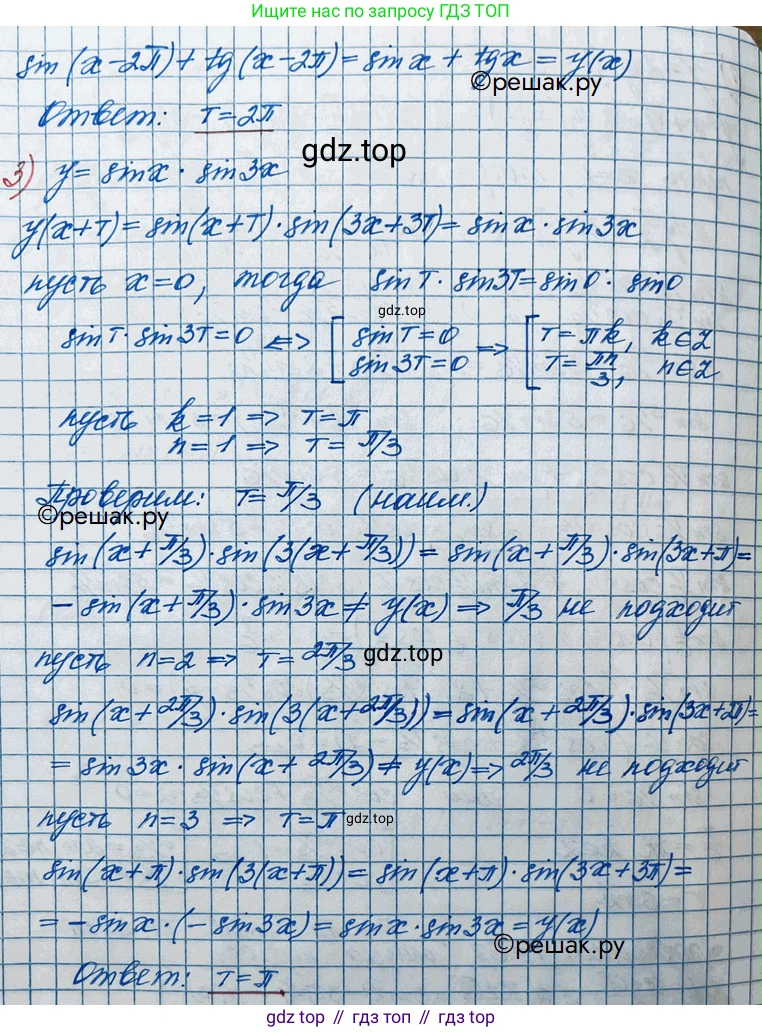 Ищите нас по запросу ГДЗ ТОП
sin (x-2π) + tg (x-2π) = sin x + tg x = y(x)
©решак.ру
Ответ: T = 2π
gdz.top
3) y = sin x · sin 3x
y(x+T) = sin(x+T) · sin(3x+3T) = sin x · sin 3x
пусть x=0, тогда sin T · sin 3T = sin 0 · sin 0
gdz.top
sin T · sin 3T = 0 <=> [ sin T = 0 => [ T = πk, k∈Z
sin 3T = 0 T = πn/3, n∈Z
пусть k = 1 => T = π
n = 1 => T = π/3
Проверим: T = π/3 (наим.)
©решак.ру
sin(x + π/3) · sin(3(x + π/3)) = sin(x + π/3) · sin(3x+π) =
- sin(x + π/3) · sin 3x ≠ y(x) => π/3 не подходит
пусть n=2 => T = 2π/3
gdz.top
sin(x + 2π/3) · sin(3(x + 2π/3)) = sin(x + 2π/3) · sin(3x+2π) =
= sin 3x · sin(x + 2π/3) ≠ y(x) => 2π/3 не подходит
пусть n=3 => T = π
gdz.top
sin(x+π) · sin(3(x+π)) = sin(x+π) · sin(3x+3π) =
= - sin x · (- sin 3x) = sin x · sin 3x = y(x)
©решак.ру
Ответ: T = π
gdz top // гдз топ // gdz.top // гдз топ